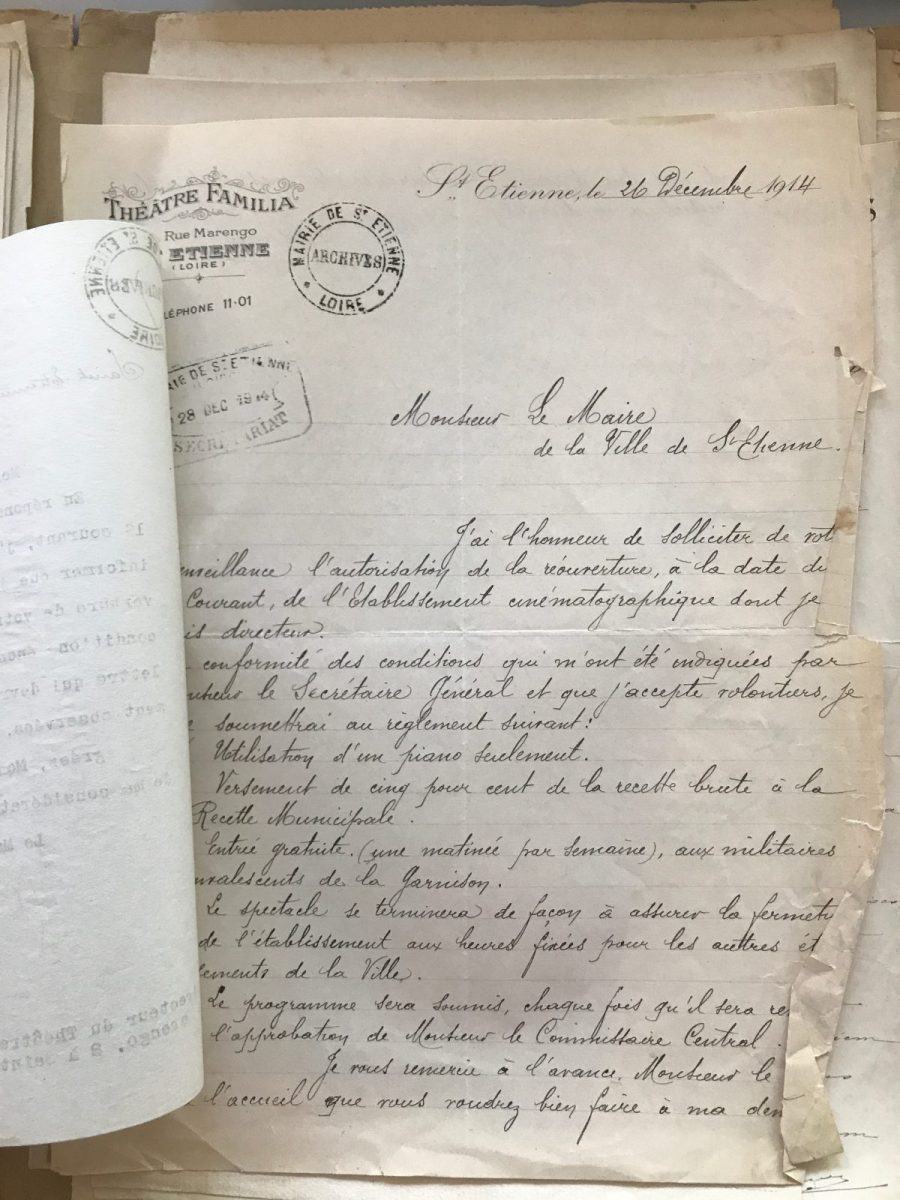 THÉÂTRE FAMILIA
Rue Marengo
ETIENNE
(LOIRE)
LÉPHONE 11.01
St Etienne, le 26 Décembre 1914
MAIRIE DE St ETIENNE
ARCHIVES
LOIRE
RIE DE St ETIENNE
28 DEC 1914
SECRETARIAT
Monsieur Le Maire
de la Ville de St-Etienne.
J'ai l'honneur de solliciter de vot
enveillance l'autorisation de la réouverture, à la date du
Courant, de l'Etablissement cinématographique dont je
is directeur.
conformité des conditions qui m'ont été indiquées par
nsieur le Secrétaire Général et que j'accepte volontiers, je
soumettrai au règlement suivant:
Utilisation d'un piano seulement.
Versement de cinq pour cent de la recette brute à la
Recette Municipale.
Entrée gratuite (une matinée par semaine), aux militaires
nvalescents de la Garnison.
Le spectacle se terminera de façon à assurer la fermetu
de l'établissement aux heures fixées pour les autres ét
sements de la Ville.
Le programme sera soumis, chaque fois qu'il sera re
l'approbation de Monsieur le Commissaire Central.
Je vous remercie à l'avance, Monsieur le
l'accueil que vous voudrez bien faire à ma dem
ETIENNE
LOIRE
En répons
courant, j
informer que
condition
lettre qui
ment observées.
gréez, Mon
de ma considérat
Le M
recteur du Théâtre
rengo, 8 à Saint